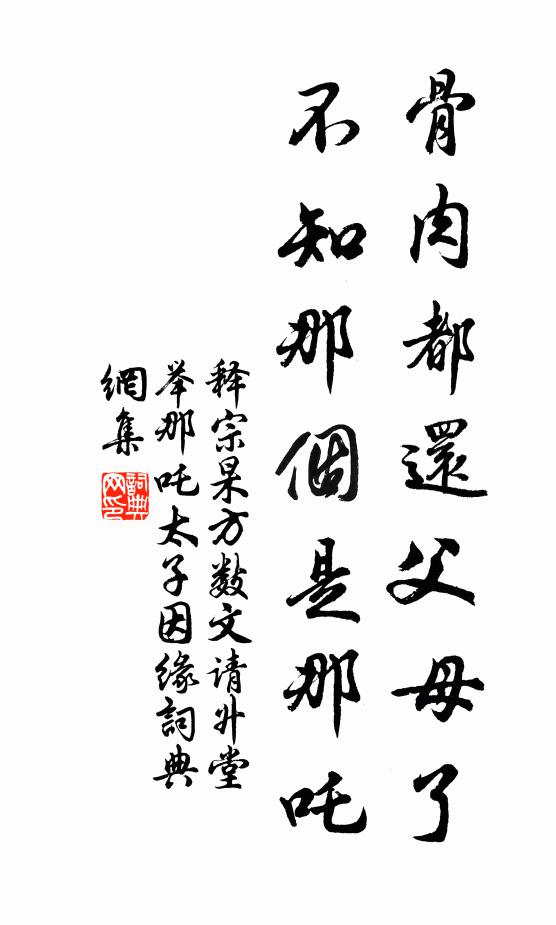 骨肉都還父母了
不知那個是那吒
释宗杲方数文请升堂
举那吒太子因缘詞典
網集
詞典網印